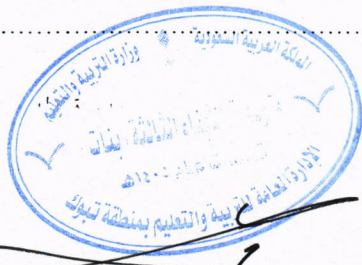 المملكة العربية السعودية
وزارة التربية والتعليم
الثالثة بنات
١٤٠٠هـ
الإدارة العامة للتربية والتعليم بمنطقة تبوك